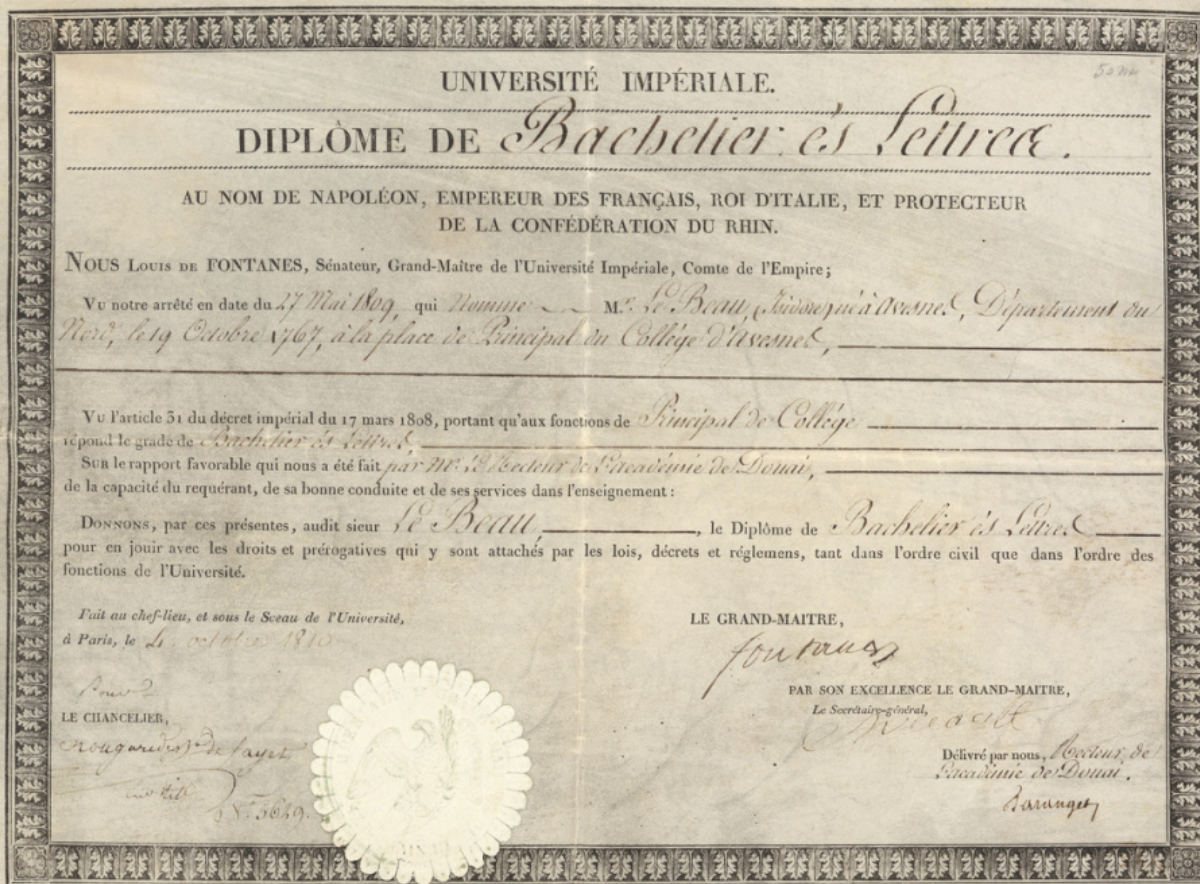 UNIVERSITÉ IMPÉRIALE.
DIPLÔME DE Bachelier ès Lettres.
AU NOM DE NAPOLÉON, EMPEREUR DES FRANÇAIS, ROI D'ITALIE, ET PROTECTEUR
DE LA CONFÉDÉRATION DU RHIN.
NOUS LOUIS DE FONTANES, Sénateur, Grand-Maître de l'Université Impériale, Comte de l'Empire;
VU notre arrêté en date du 27 Mai 1809, qui Nomme M.r Le Beau, (Isidore) né à Avesnes, Département du
Nord, le 19 Octobre 1767, à la place de Principal du Collège d'Avesnes,
VU l'article 31 du décret impérial du 17 mars 1808, portant qu'aux fonctions de Principal de Collége
répond le grade de Bachelier ès Lettres,
SUR le rapport favorable qui nous a été fait par Mr. le Recteur de l'académie de Douai,
de la capacité du requérant, de sa bonne conduite et de ses services dans l'enseignement :
DONNONS, par ces présentes, audit sieur Le Beau, , le Diplôme de Bachelier ès Lettres
pour en jouir avec les droits et prérogatives qui y sont attachés par les lois, décrets et réglemens, tant dans l'ordre civil que dans l'ordre des
fonctions de l'Université.
Fait au chef-lieu, et sous le Sceau de l'Université,
à Paris, le 4 octobre 1810
LE CHANCELIER,
N.° 3649.
LE GRAND-MAITRE,
fontanes
PAR SON EXCELLENCE LE GRAND-MAITRE,
Le Secrétaire-général,
Délivré par nous, Recteur de
l'académie de Douai.